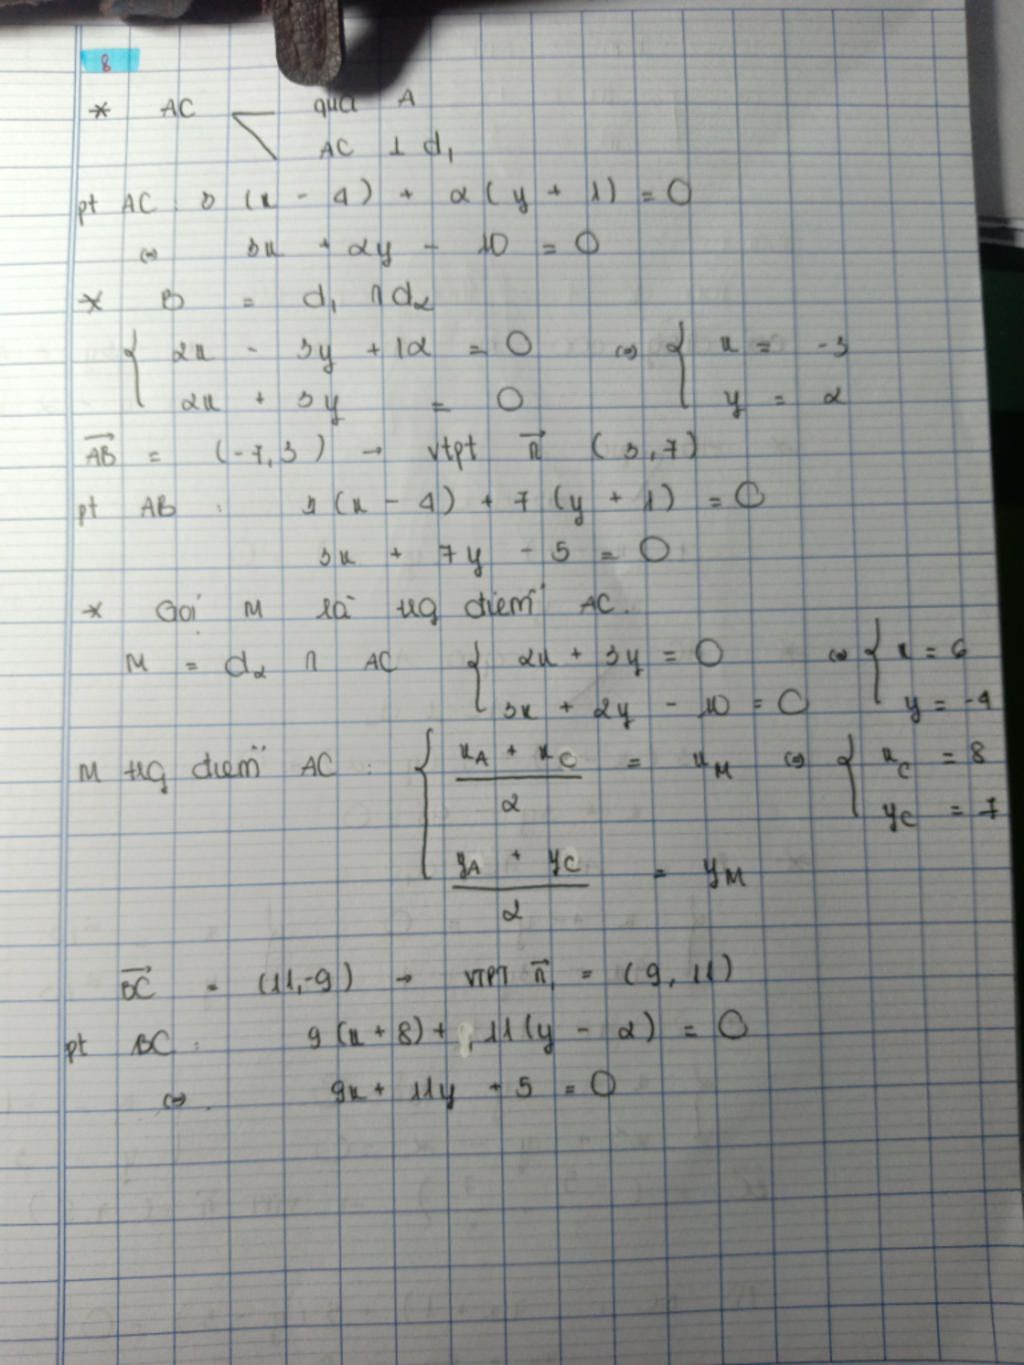 8
* AC qua A
AC ⊥ d₁
pt AC : 3 (x - 4) + 2 (y + 1) = 0
⇔ 3x + 2y - 10 = 0
* B = d₁ ∩ d₂
{ 2x - 3y + 12 = 0 ⇔ { x = -3
2x + 3y = 0 y = 2
AB→ = (-7, 3) → vtpt n→ (3, 7)
pt AB : 3 (x - 4) + 7 (y + 1) = 0
3x + 7y - 5 = 0
* Gọi M là trg điểm AC.
M = d₂ ∩ AC { 2x + 3y = 0 ⇔ { x = 6
3x + 2y - 10 = 0 y = -4
M trg điểm AC : { (xA + xC) / 2 = xM ⇔ { xC = 8
yC = 7
(yA + yC) / 2 = yM
BC→ = (11, -9) → VTPT n→ = (9, 11)
pt BC : 9 (x + 8) + 11 (y - 2) = 0
⇔ 9x + 11y + 5 = 0